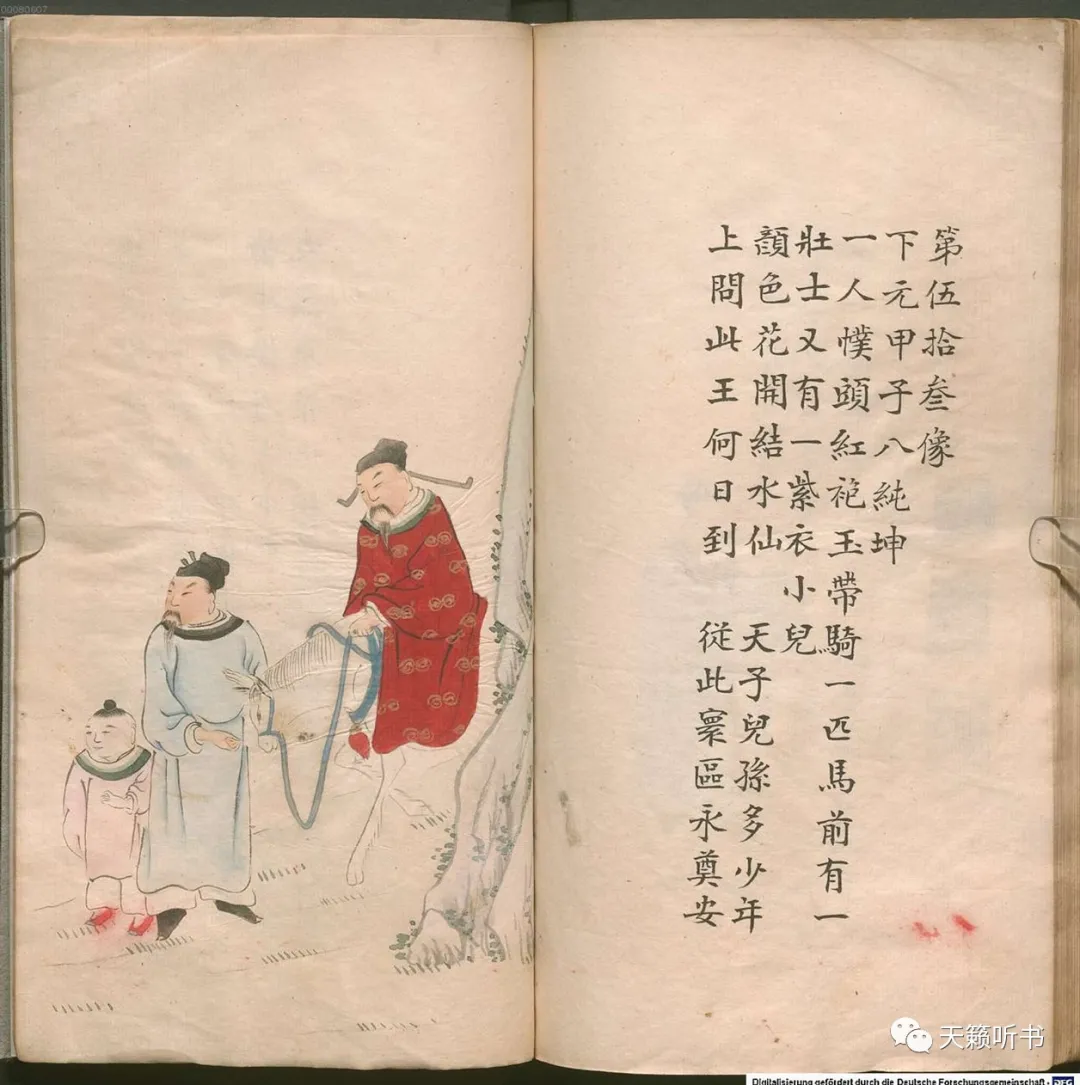 00080607
第伍拾叁像
下元甲子八純坤
一人幞頭紅袍玉帶騎一匹馬前有一
壯士又有一紫衣小兒
顏色花開結水仙 天子兒孫多少年
上問此王何日到 從此寰區永奠安
天籁听书
Digitalisierung gefördert durch die Deutsche Forschungsgemeinschaft - DFG